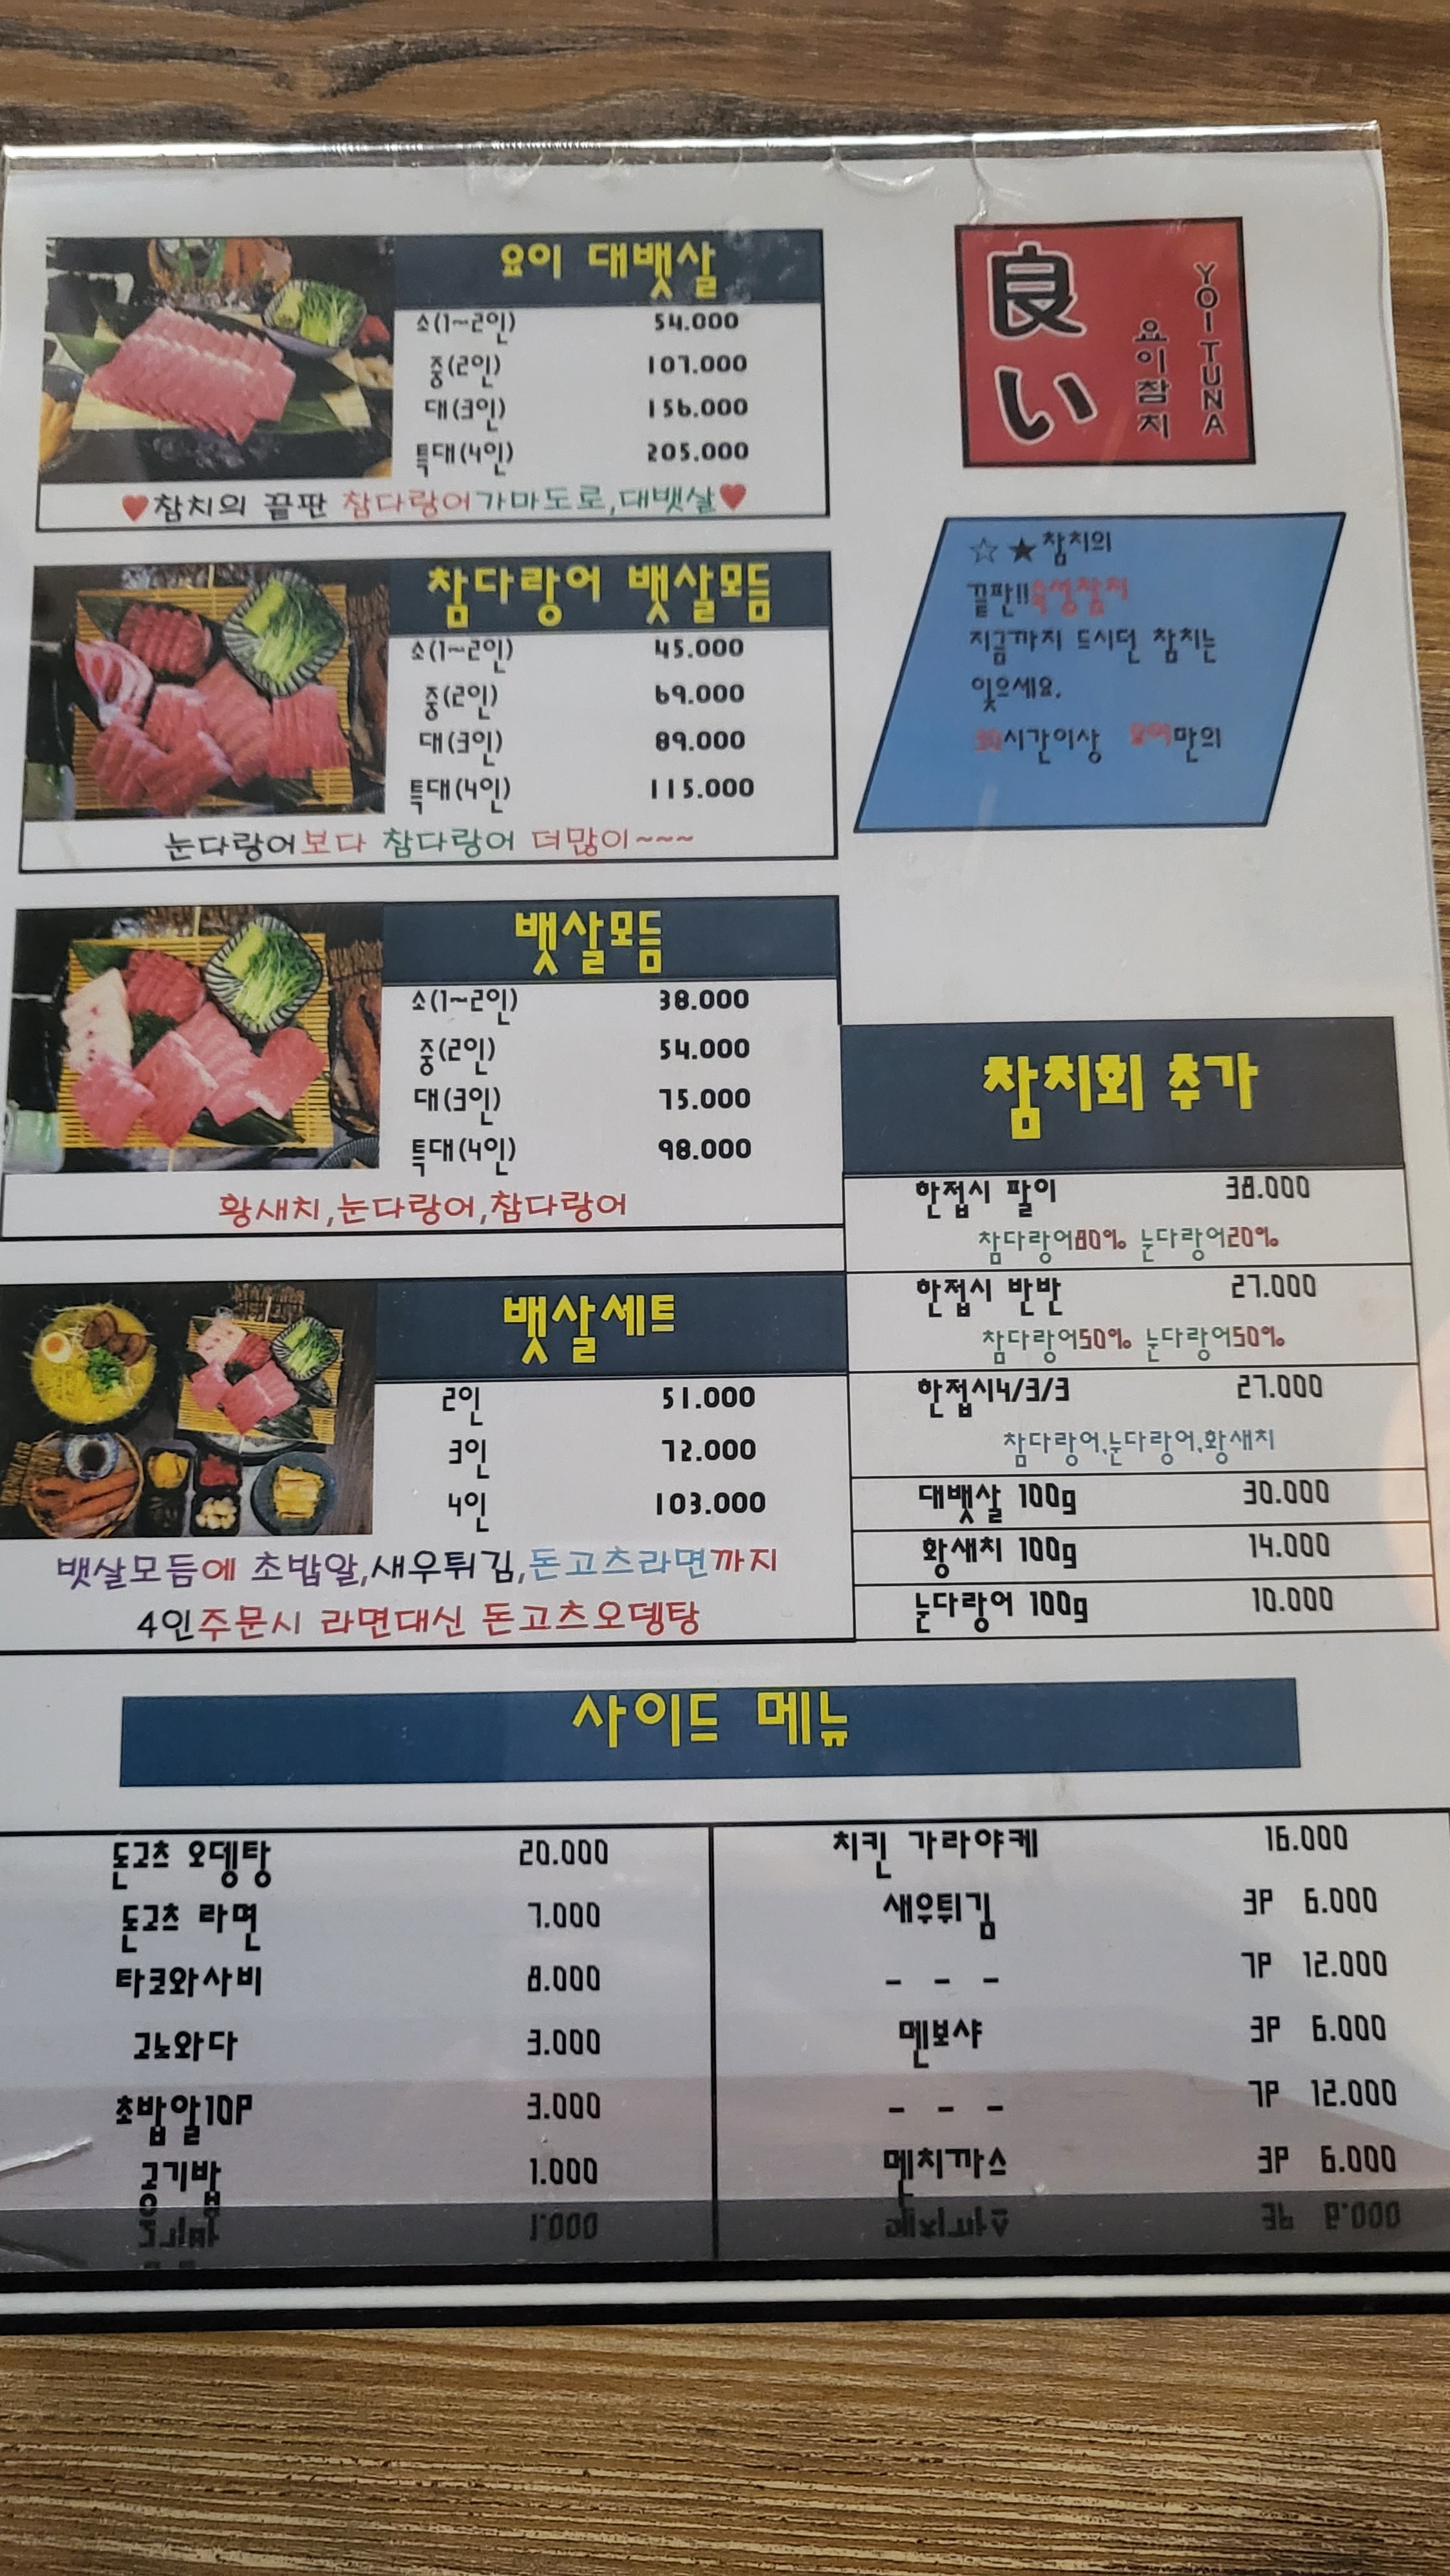 요이 대뱃살
소(1~2인) 54.000
중(2인) 107.000
대(3인) 156.000
특대(4인) 205.000
♥참치의 끝판 참다랑어가마도로,대뱃살♥
良い
요이참치
YOI TUNA
☆★참치의
끝판!!숙성참치
지금까지 드시던 참치는
잊으세요.
30시간이상 요이만의
참다랑어 뱃살모듬
소(1~2인) 45.000
중(2인) 69.000
대(3인) 89.000
특대(4인) 115.000
눈다랑어보다 참다랑어 더많이~~~
뱃살모듬
소(1~2인) 38.000
중(2인) 54.000
대(3인) 75.000
특대(4인) 98.000
황새치,눈다랑어,참다랑어
뱃살세트
2인 51.000
3인 72.000
4인 103.000
뱃살모듬에 초밥알,새우튀김,돈고츠라면까지
4인주문시 라면대신 돈고츠오뎅탕
참치회 추가
한접시 팔이 38.000
참다랑어80% 눈다랑어20%
한접시 반반 27.000
참다랑어50% 눈다랑어50%
한접시4/3/3 27.000
참다랑어,눈다랑어,황새치
대뱃살 100g 30.000
황새치 100g 14.000
눈다랑어 100g 10.000
사이드 메뉴
돈고츠 오뎅탕 20.000
돈고츠 라면 7.000
타코와사비 8.000
고노와다 3.000
초밥알10P 3.000
공기밥 1.000
치킨 가라야케 16.000
새우튀김 3P 6.000
- - - 7P 12.000
멘보샤 3P 6.000
- - - 7P 12.000
멘치까스 3P 6.000